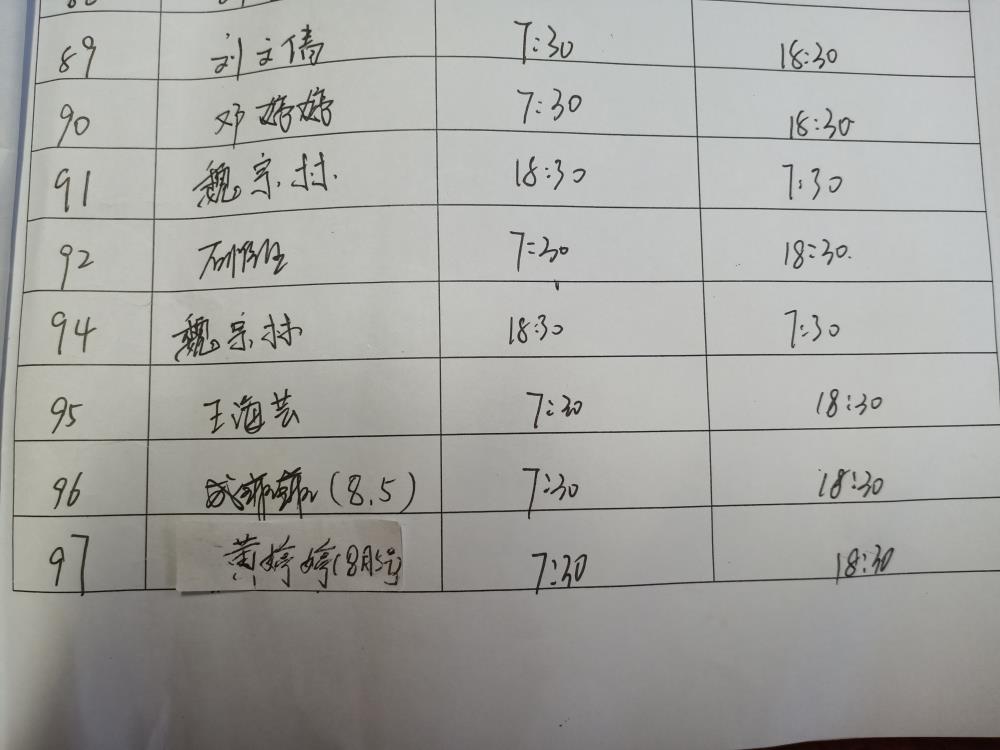 89 刘文倩 7:30 18:30
90 邓婷婷 7:30 18:30
91 魏宗林 18:30 7:30
92 7:30 18:30
94 魏宗林 18:30 7:30
95 王海芸 7:30 18:30
96 (8.5) 7:30 18:30
97 黄婷婷(8月5号) 7:30 18:30